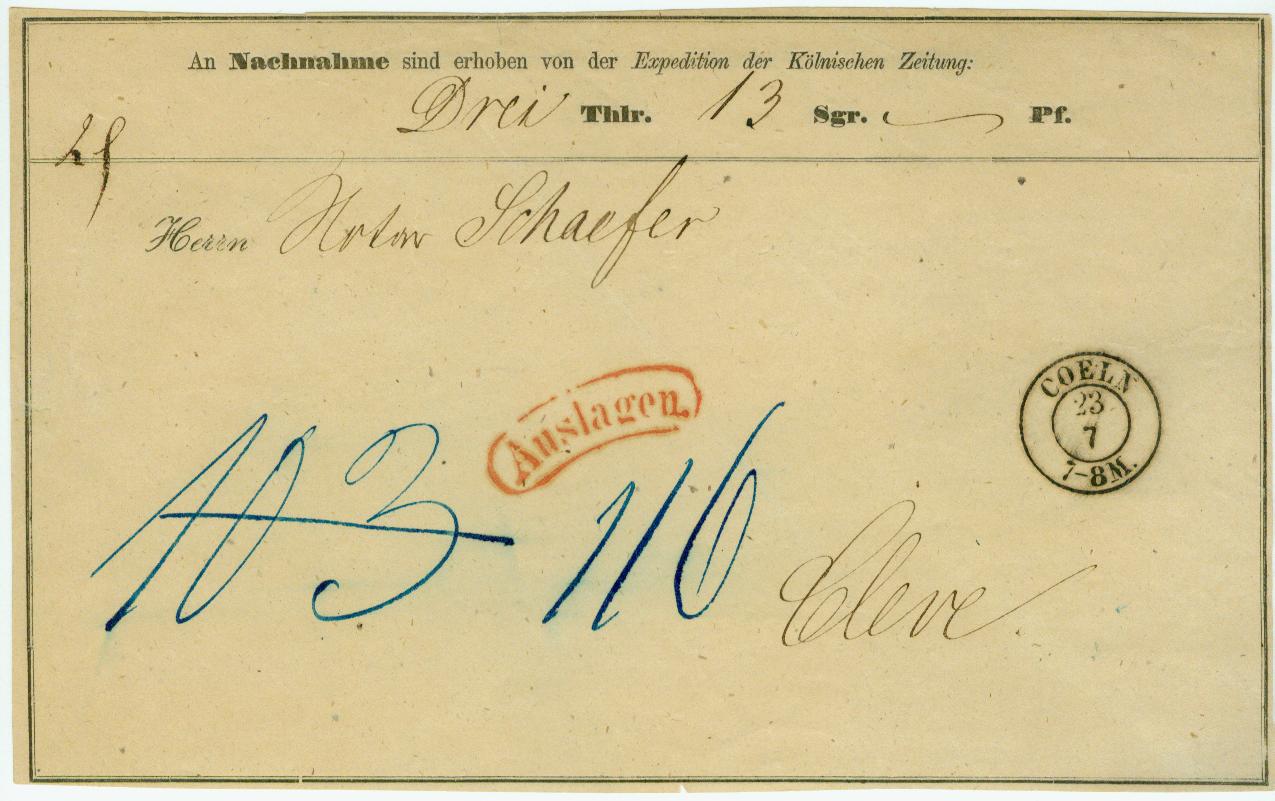 An Nachnahme sind erhoben von der Expedition der Kölnischen Zeitung:
Drei Thlr. 13 Sgr. — Pf.
Herrn Notar Schaefer
Auslagen.
COELN
23
7
7-8M.
103
116
Cleve.